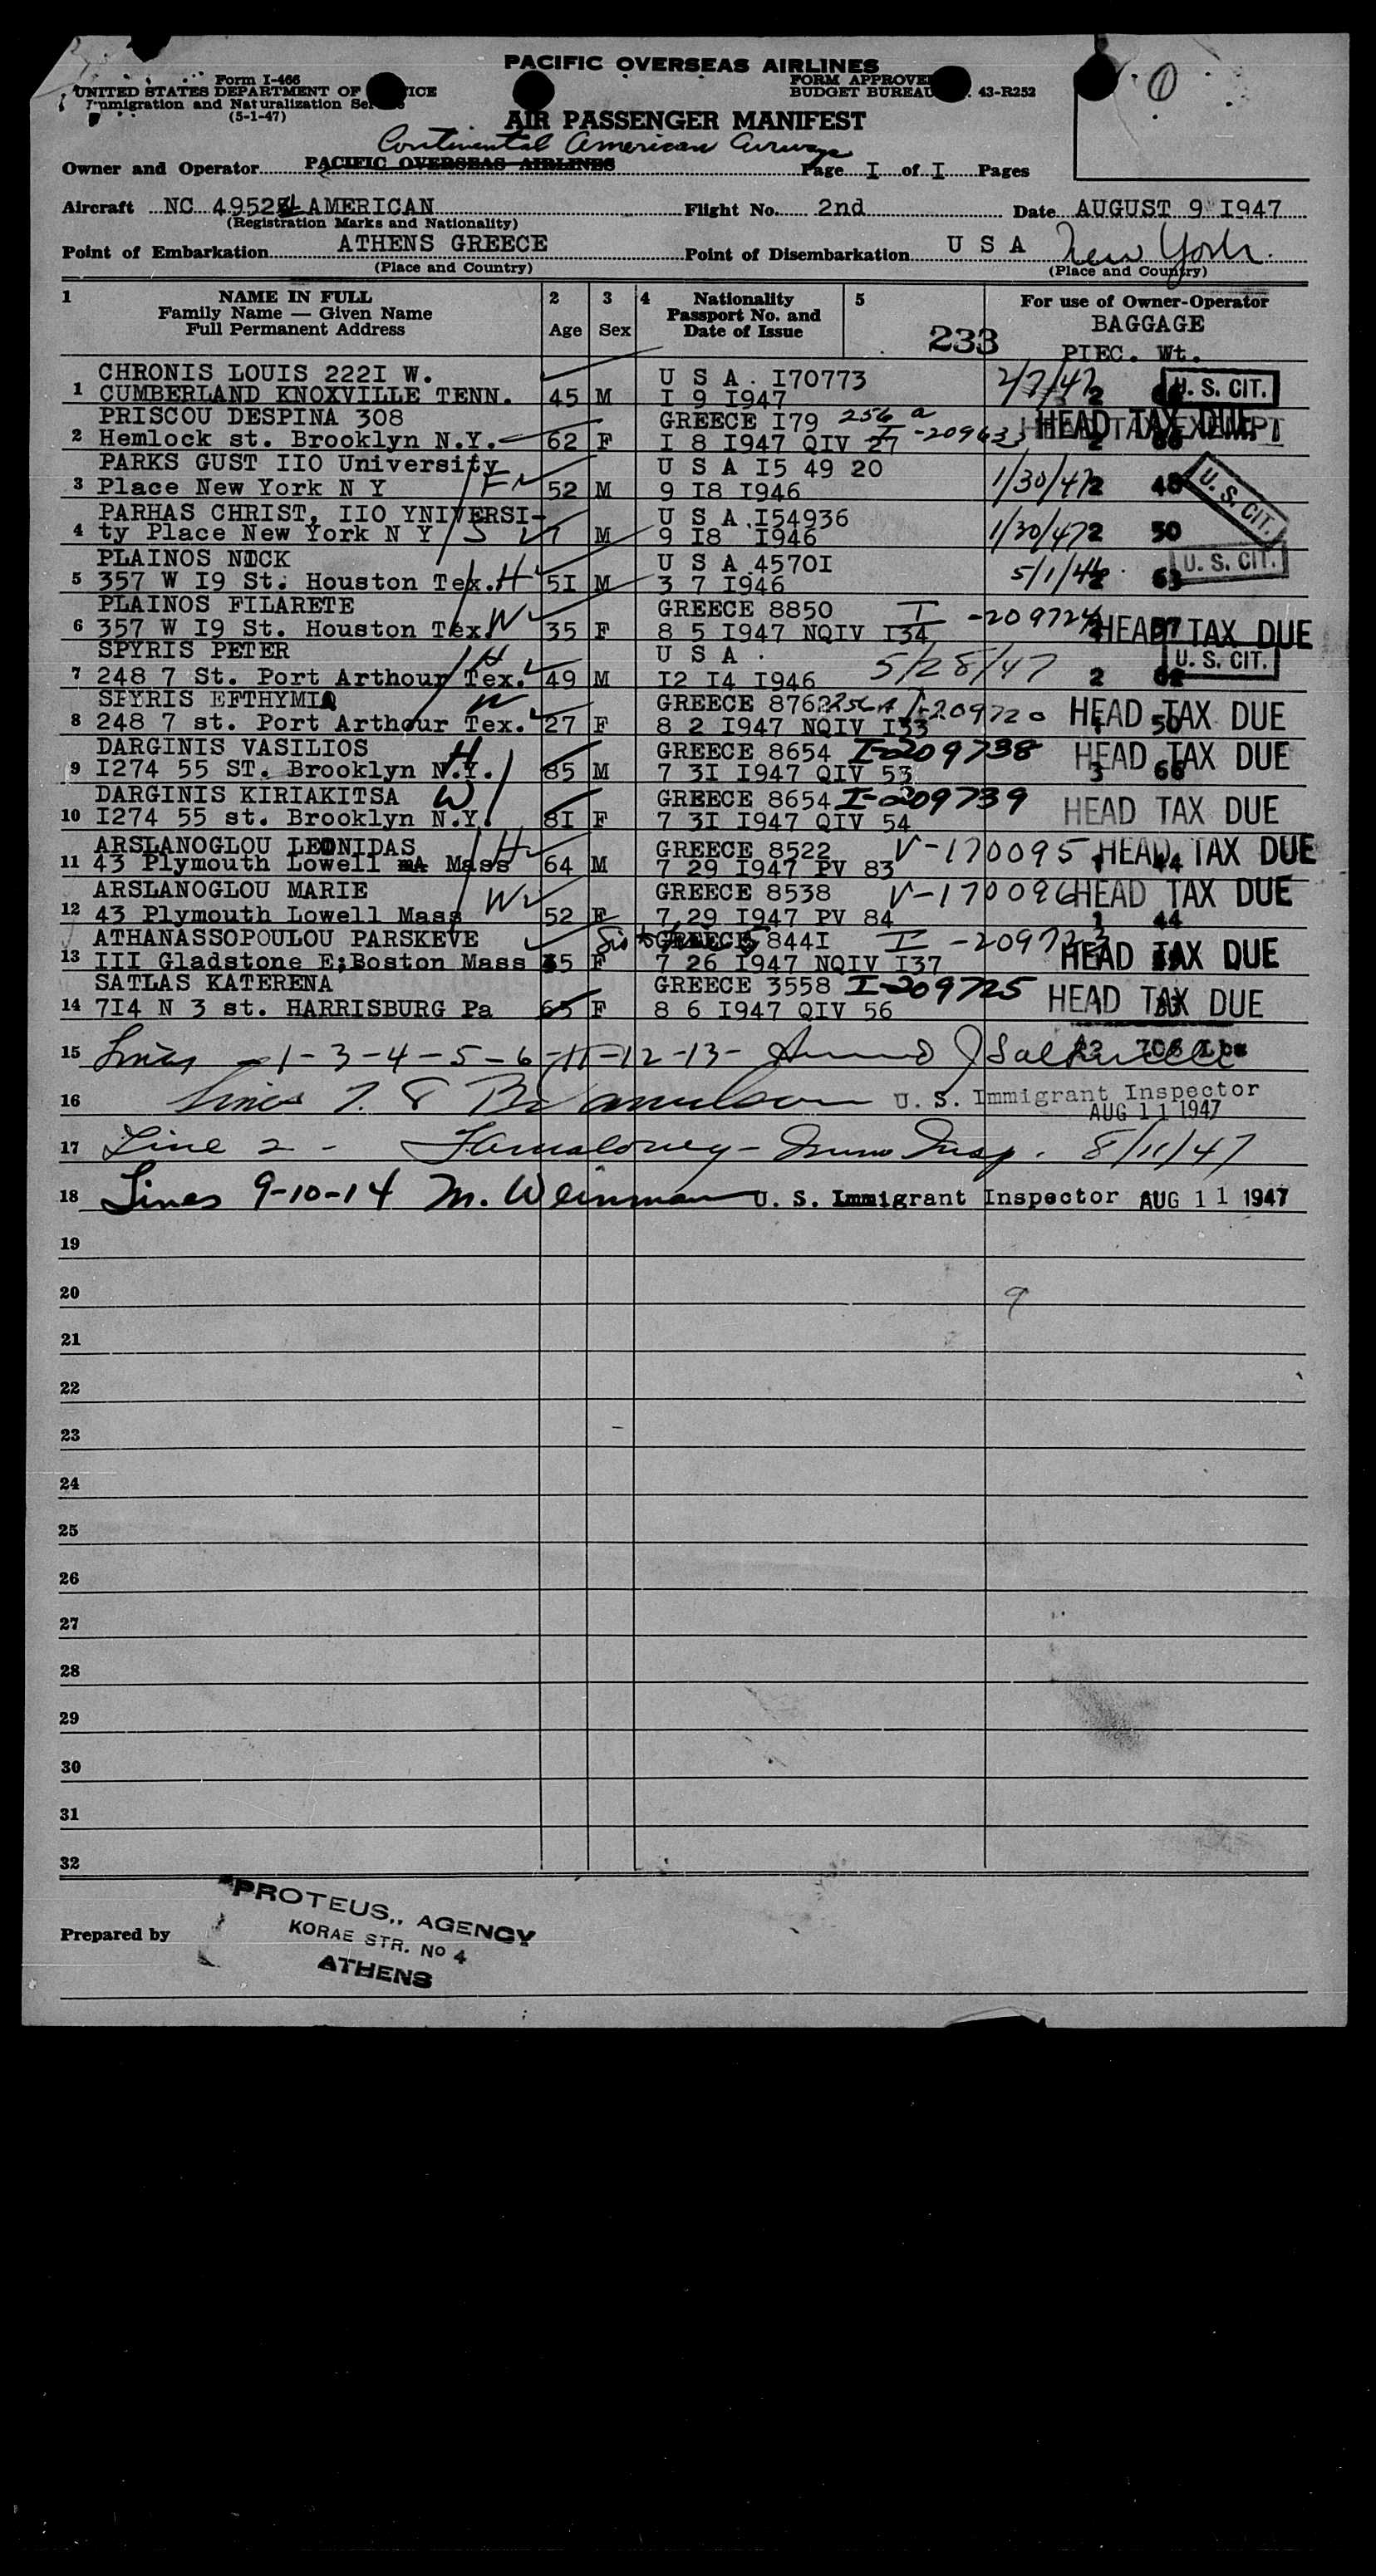 PACIFIC OVERSEAS AIRLINES
Form I-466
UNITED STATES DEPARTMENT OF
Immigration and Naturalization
(5-1-47)
FORM APPROVED
BUDGET BUREAU 43-R252
AIR PASSENGER MANIFEST
Continental American Airways
Owner and Operator PACIFIC OVERSEAS AIRLINES Page I of I Pages
Aircraft NC 4952 AMERICAN Flight No. 2nd Date AUGUST 9 I947
(Registration Marks and Nationality)
Point of Embarkation ATHENS GREECE Point of Disembarkation U S A New York.
(Place and Country) (Place and Country)
1 NAME IN FULL 2 3 4 Nationality 5 For use of Owner-Operator
Family Name — Given Name Passport No. and BAGGAGE
Full Permanent Address Age Sex Date of Issue 233 PIEC. Wt.
CHRONIS LOUIS 222I W. U S A. I70773 2/7/47 U. S. CIT.
1 CUMBERLAND KNOXVILLE TENN. 45 M I 9 I947 2
PRISCOU DESPINA 308 GREECE I79 256 a HEAD TAX DUE
2 Hemlock st. Brooklyn N.Y. 62 F I 8 I947 QIV 27 I-209633
PARKS GUST IIO University U S A I5 49 20 1/30/47 U. S. CIT.
3 Place New York N Y F 52 M 9 I8 I946 2 48
PARHAS CHRIST, IIO YNIVERSI- U S A.I54936 1/30/47
4 ty Place New York N Y S M 9 I8 I946 2 50
PLAINOS NICK U S A.4570I 5/1/46 U. S. CIT.
5 357 W I9 St. Houston Tex. H 5I M 3 7 I946 63
PLAINOS FILARETE GREECE 8850 I-209724
6 357 W I9 St. Houston Tex. W 35 F 8 5 I947 NQIV I34 HEAD TAX DUE
SPYRIS PETER H U S A. 5/28/47 U. S. CIT.
7 248 7 St. Port Arthour Tex. 49 M I2 I4 I946 2 62
SPYRIS EFTHYMIA W GREECE 8762 256A I-209720
8 248 7 st. Port Arthour Tex. 27 F 8 2 I947 NQIV I33 50 HEAD TAX DUE
DARGINIS VASILIOS H GREECE 8654 I-209738 HEAD TAX DUE
9 I274 55 ST. Brooklyn N.Y. 85 M 7 3I I947 QIV 53 3 66
DARGINIS KIRIAKITSA W GREECE 8654 I-209739 HEAD TAX DUE
10 I274 55 st. Brooklyn N.Y. 8I F 7 3I I947 QIV 54
ARSLANOGLOU LEONIDAS H GREECE 8522 V-170095 HEAD TAX DUE
11 43 Plymouth Lowell Mass 64 M 7 29 I947 PV 83 1 44
ARSLANOGLOU MARIE W GREECE 8538 V-170096 HEAD TAX DUE
12 43 Plymouth Lowell Mass 52 F 7 29 I947 PV 84 1 44
ATHANASSOPOULOU PARSKEVE GREECE 844I
13 III Gladstone E;Boston Mass 35 F 7 26 I947 NQIV I37 HEAD TAX DUE
SATLAS KATERENA GREECE 3558 I-209725 HEAD TAX DUE
14 7I4 N 3 st. HARRISBURG Pa 65 F 8 6 I947 QIV 56
15 Lines - 1-3-4-5-6-11-12-13-
16 Lines 7. 8 U. S. Immigrant Inspector
AUG 11 1947
17 Line 2 - Immig Insp. 8/11/47
18 Lines 9-10-14 M. Weinman U. S. Immigrant Inspector AUG 11 1947
19
20 9
21
22
23
24
25
26
27
28
29
30
31
32
Prepared by
PROTEUS,, AGENCY
KORAE STR. No 4
ATHENS